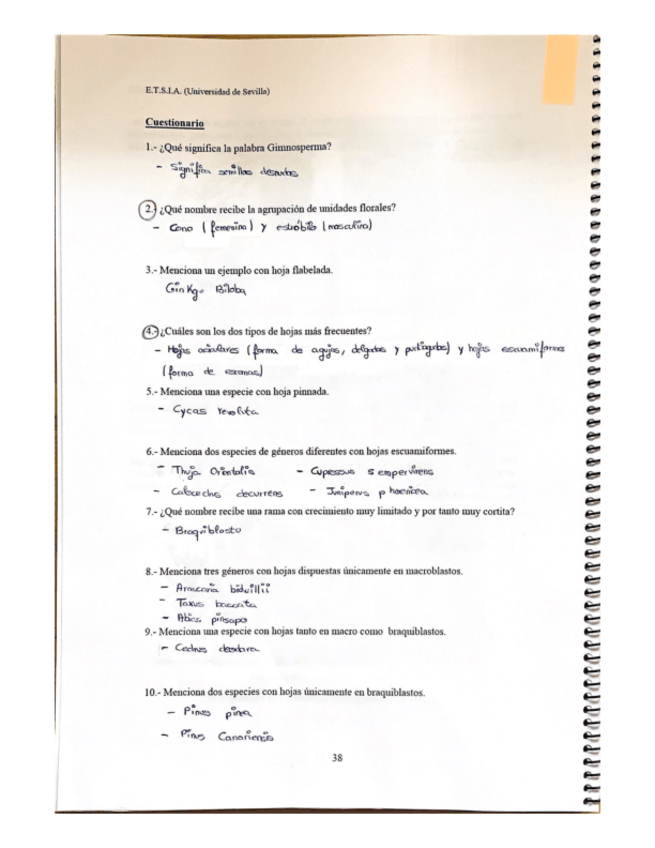 E.T.S.I.A. (Universidad de Sevilla)
Cuestionario
1.- ¿Qué significa la palabra Gimnosperma?
- Significa semillas desnudas
2.- ¿Qué nombre recibe la agrupación de unidades florales?
- Cono (femenino) y estróbilo (masculino)
3.- Menciona un ejemplo con hoja flabelada.
Ginkgo Biloba
4.- ¿Cuáles son los dos tipos de hojas más frecuentes?
- Hojas aciculares (forma de agujas, delgadas y puntiagudas) y hojas escuamiformes
(forma de escamas)
5.- Menciona una especie con hoja pinnada.
- Cycas revoluta
6.- Menciona dos especies de géneros diferentes con hojas escuamiformes.
- Thuja Orientalis - Cupressus sempervirens
- Calocedrus decurrens - Juniperus phoenicea
7.- ¿Qué nombre recibe una rama con crecimiento muy limitado y por tanto muy cortita?
- Braquiblasto
8.- Menciona tres géneros con hojas dispuestas únicamente en macroblastos.
- Araucaria bidwillii
- Taxus baccata
- Abies pinsapo
9.- Menciona una especie con hojas tanto en macro como braquiblastos.
- Cedrus deodara
10.- Menciona dos especies con hojas únicamente en braquiblastos.
- Pinus pinea
- Pinus Canariensis
38